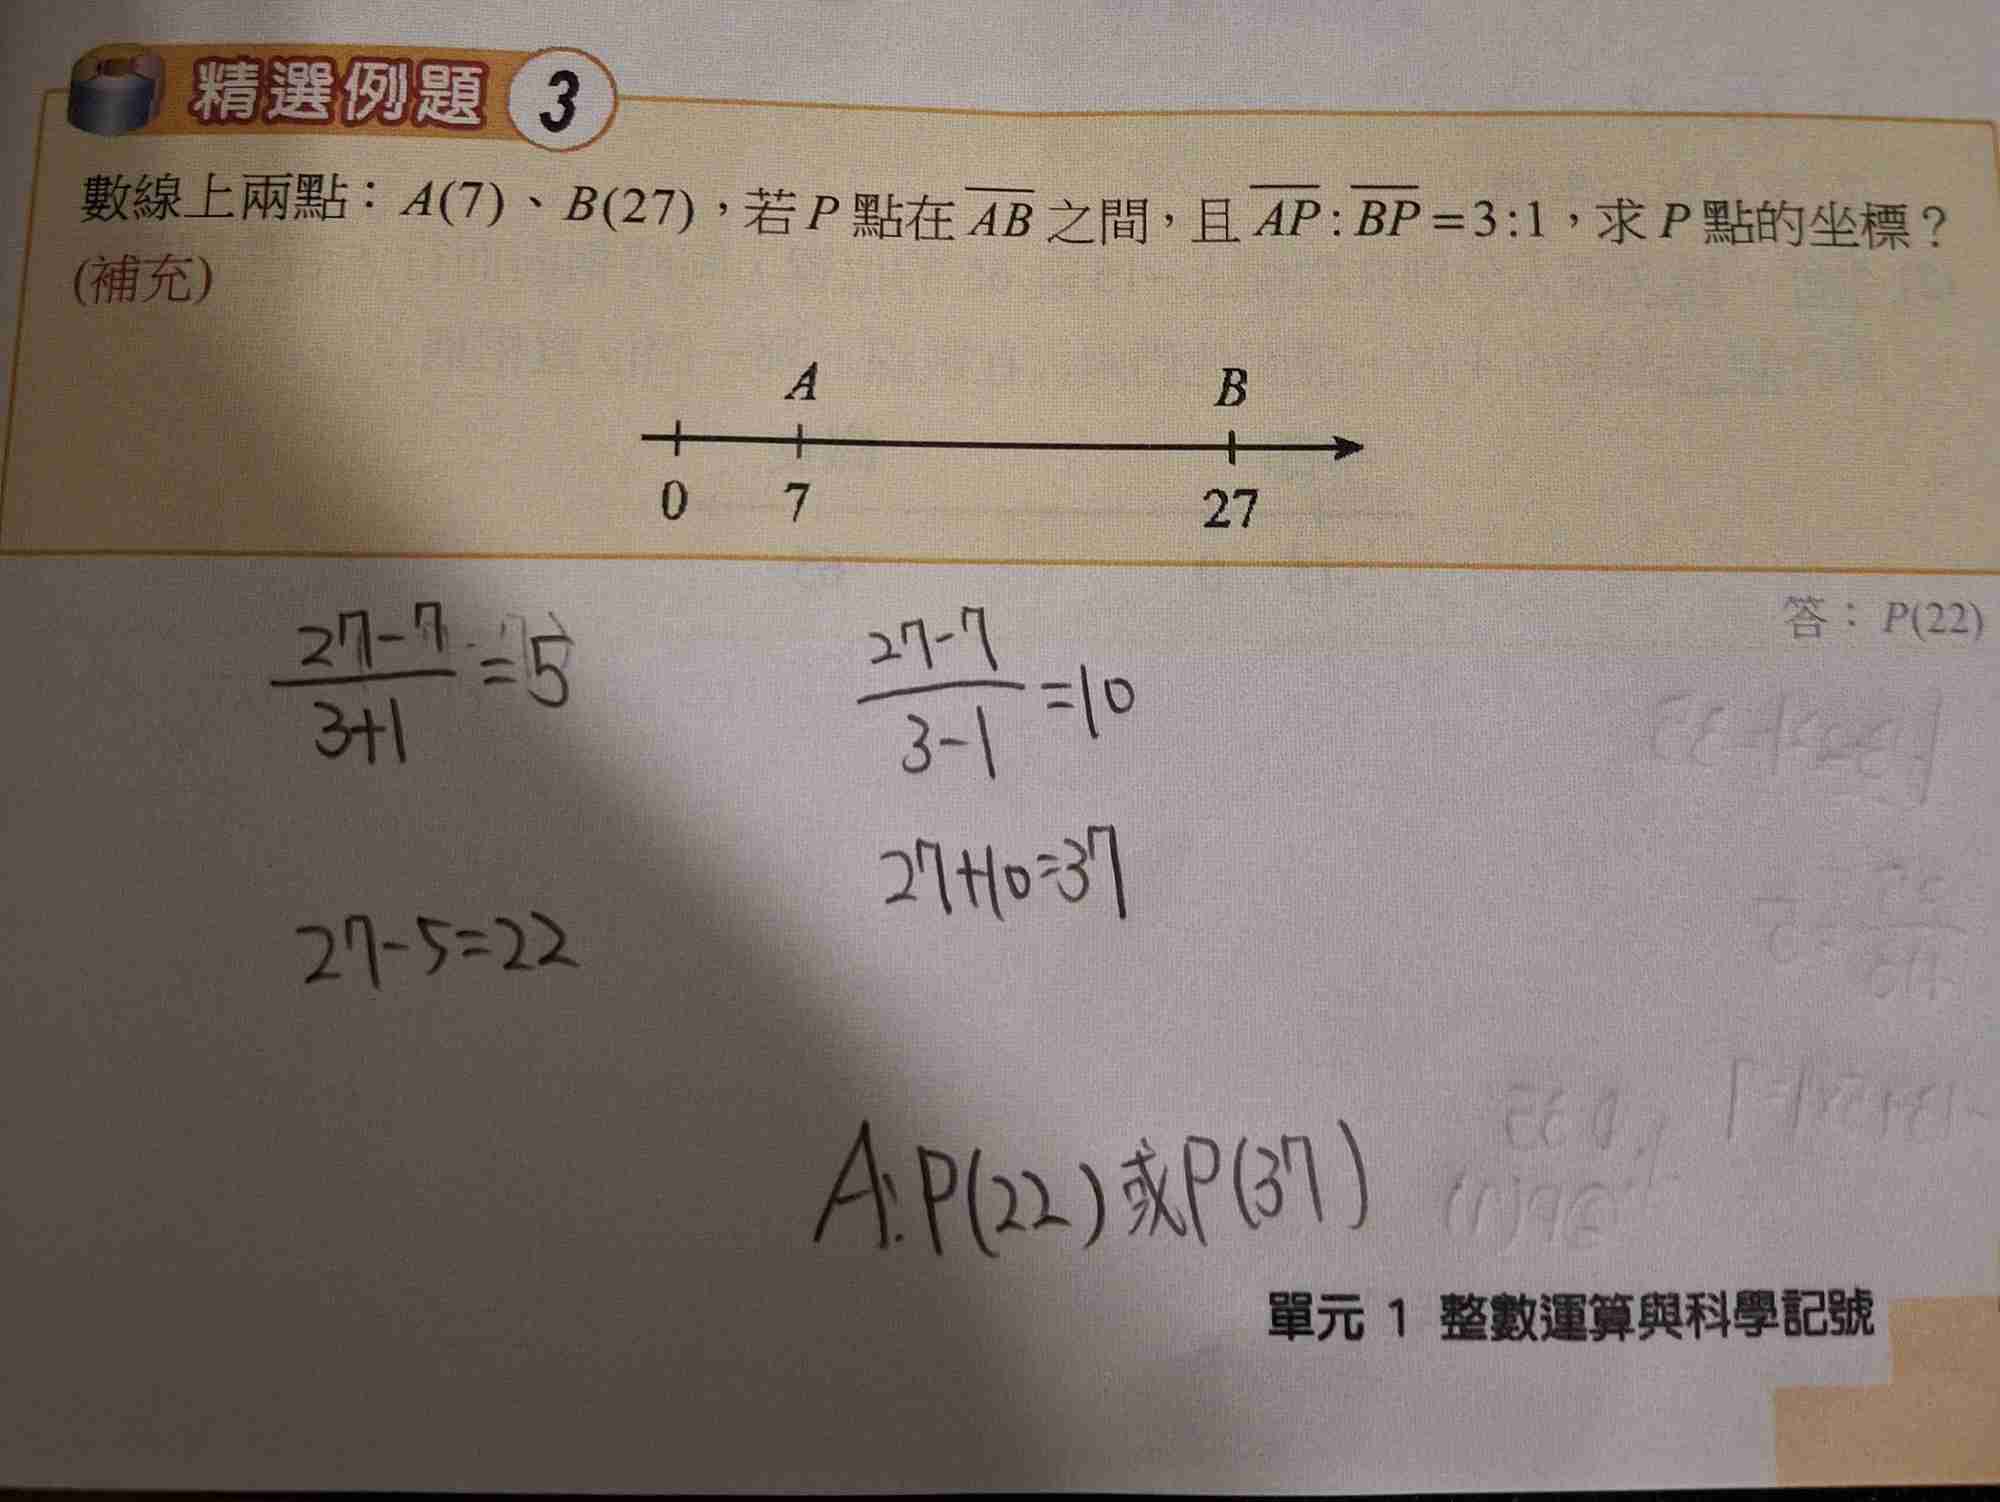 精選例題 3
數線上兩點：A(7)、B(27)，若 P 點在 AB 之間，且 AP : BP = 3 : 1，求 P 點的坐標？
(補充)
A B
0 7 27
答：P(22)
27-7/3+1 = 5
27-7/3-1 = 10
27+10=37
27-5=22
A: P(22) 或 P(37)
單元 1 整數運算與科學記號